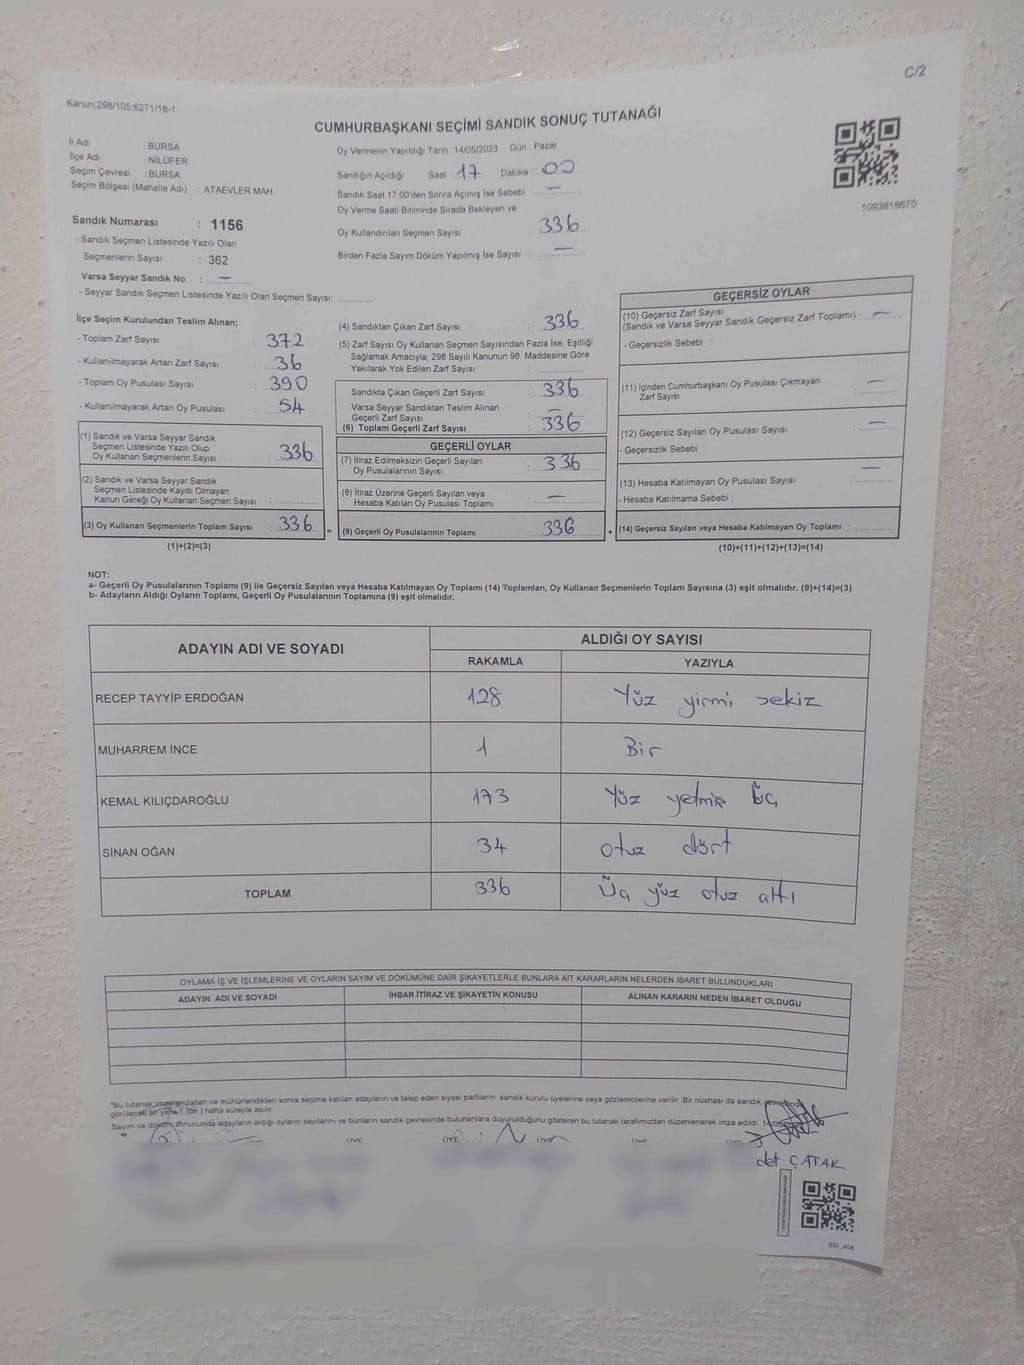 C/2
Kanun:298/105;6271/18-1
CUMHURBAŞKANI SEÇİMİ SANDIK SONUÇ TUTANAĞI
İl Adı : BURSA
İlçe Adı : NİLÜFER
Seçim Çevresi : BURSA
Seçim Bölgesi (Mahalle Adı) : ATAEVLER MAH.
Sandık Numarası : 1156
- Sandık Seçmen Listesinde Yazılı Olan
Seçmenlerin Sayısı : 362
Varsa Seyyar Sandık No : —
- Seyyar Sandık Seçmen Listesinde Yazılı Olan Seçmen Sayısı:
Oy Vermenin Yapıldığı Tarih : 14/05/2023 Gün : Pazar
Sandığın Açıldığı Saat : 17 Dakika : 00
Sandık Saat 17:00'den Sonra Açımış İse Sebebi : —
Oy Verme Saati Bitiminde Sırada Bekleyen ve
Oy Kullandırılan Seçmen Sayısı 336
Birden Fazla Sayım Döküm Yapılmış İse Sayısı : —
1093818670
İlçe Seçim Kurulundan Teslim Alınan;
- Toplam Zarf Sayısı : 372
- Kullanılmayarak Artan Zarf Sayısı : 36
- Toplam Oy Pusulası Sayısı : 390
- Kullanılmayarak Artan Oy Pusulası : 54
(1) Sandık ve Varsa Seyyar Sandık
Seçmen Listesinde Yazılı Olup
Oy Kullanan Seçmenlerin Sayısı : 336
(2) Sandık ve Varsa Seyyar Sandık
Seçmen Listesinde Kayıtlı Olmayan
Kanun Gereği Oy Kullanan Seçmen Sayısı :
(3) Oy Kullanan Seçmenlerin Toplam Sayısı : 336 =
(1)+(2)=(3)
(4) Sandıktan Çıkan Zarf Sayısı : 336
(5) Zarf Sayısı Oy Kullanan Seçmen Sayısından Fazla İse, Eşitliği
Sağlamak Amacıyla; 298 Sayılı Kanunun 98. Maddesine Göre
Yakılarak Yok Edilen Zarf Sayısı :
Sandıkta Çıkan Geçerli Zarf Sayısı : 336
Varsa Seyyar Sandıktan Teslim Alınan
Geçerli Zarf Sayısı : —
(6) Toplam Geçerli Zarf Sayısı : 336
GEÇERLİ OYLAR
(7) İtiraz Edilmeksizin Geçerli Sayılan
Oy Pusulalarının Sayısı : 336
(8) İtiraz Üzerine Geçerli Sayılan veya
Hesaba Katılan Oy Pusulası Toplamı : —
(9) Geçerli Oy Pusulalarının Toplamı : 336 +
GEÇERSİZ OYLAR
(10) Geçersiz Zarf Sayısı
(Sandık ve Varsa Seyyar Sandık Geçersiz Zarf Toplamı) : —
- Geçersizlik Sebebi :
(11) İçinden Cumhurbaşkanı Oy Pusulası Çıkmayan
Zarf Sayısı : —
(12) Geçersiz Sayılan Oy Pusulası Sayısı : —
- Geçersizlik Sebebi :
(13) Hesaba Katılmayan Oy Pusulası Sayısı : —
- Hesaba Katılmama Sebebi :
(14) Geçersiz Sayılan veya Hesaba Katılmayan Oy Toplamı :
(10)+(11)+(12)+(13)=(14)
NOT:
a- Geçerli Oy Pusulalarının Toplamı (9) ile Geçersiz Sayılan veya Hesaba Katılmayan Oy Toplamı (14) Toplamları, Oy Kullanan Seçmenlerin Toplam Sayısına (3) eşit olmalıdır. (9)+(14)=(3)
b- Adayların Aldığı Oyların Toplamı, Geçerli Oy Pusulalarının Toplamına (9) eşit olmalıdır.
ADAYIN ADI VE SOYADI ALDIĞI OY SAYISI
RAKAMLA YAZIYLA
RECEP TAYYİP ERDOĞAN 128 Yüz yirmi sekiz
MUHARREM İNCE 1 Bir
KEMAL KILIÇDAROĞLU 173 Yüz yetmiş üç
SİNAN OĞAN 34 otuz dört
TOPLAM 336 Üç yüz otuz altı
OYLAMA İŞ VE İŞLEMLERİNE VE OYLARIN SAYIM VE DÖKÜMÜNE DAİR ŞİKAYETLERLE BUNLARA AİT KARARLARIN NELERDEN İBARET BULUNDUKLARI
ADAYIN ADI VE SOYADI İHBAR İTİRAZ VE ŞİKAYETİN KONUSU ALINAN KARARIN NEDEN İBARET OLDUĞU
*Bu tutanak imzalandıktan ve mühürlendikten sonra seçime katılan adayların ve talep eden siyasi partilerin sandık kurulu üyelerine veya gözlemcilerine verilir .Bir nüshası da sandık çevresinde
görülecek bir yere 1 (bir ) hafta süreyle asılır.
Sayım ve döküm sonucunda adayların aldığı oyların sayılarını ve bunların sandık çevresinde bulunanlara duyurulduğunu gösteren bu tutanak tarafımızdan düzenlenerek imza edildi.
ÜYE ÜYE ÜYE ÜYE
ÇATAK
SSI_404